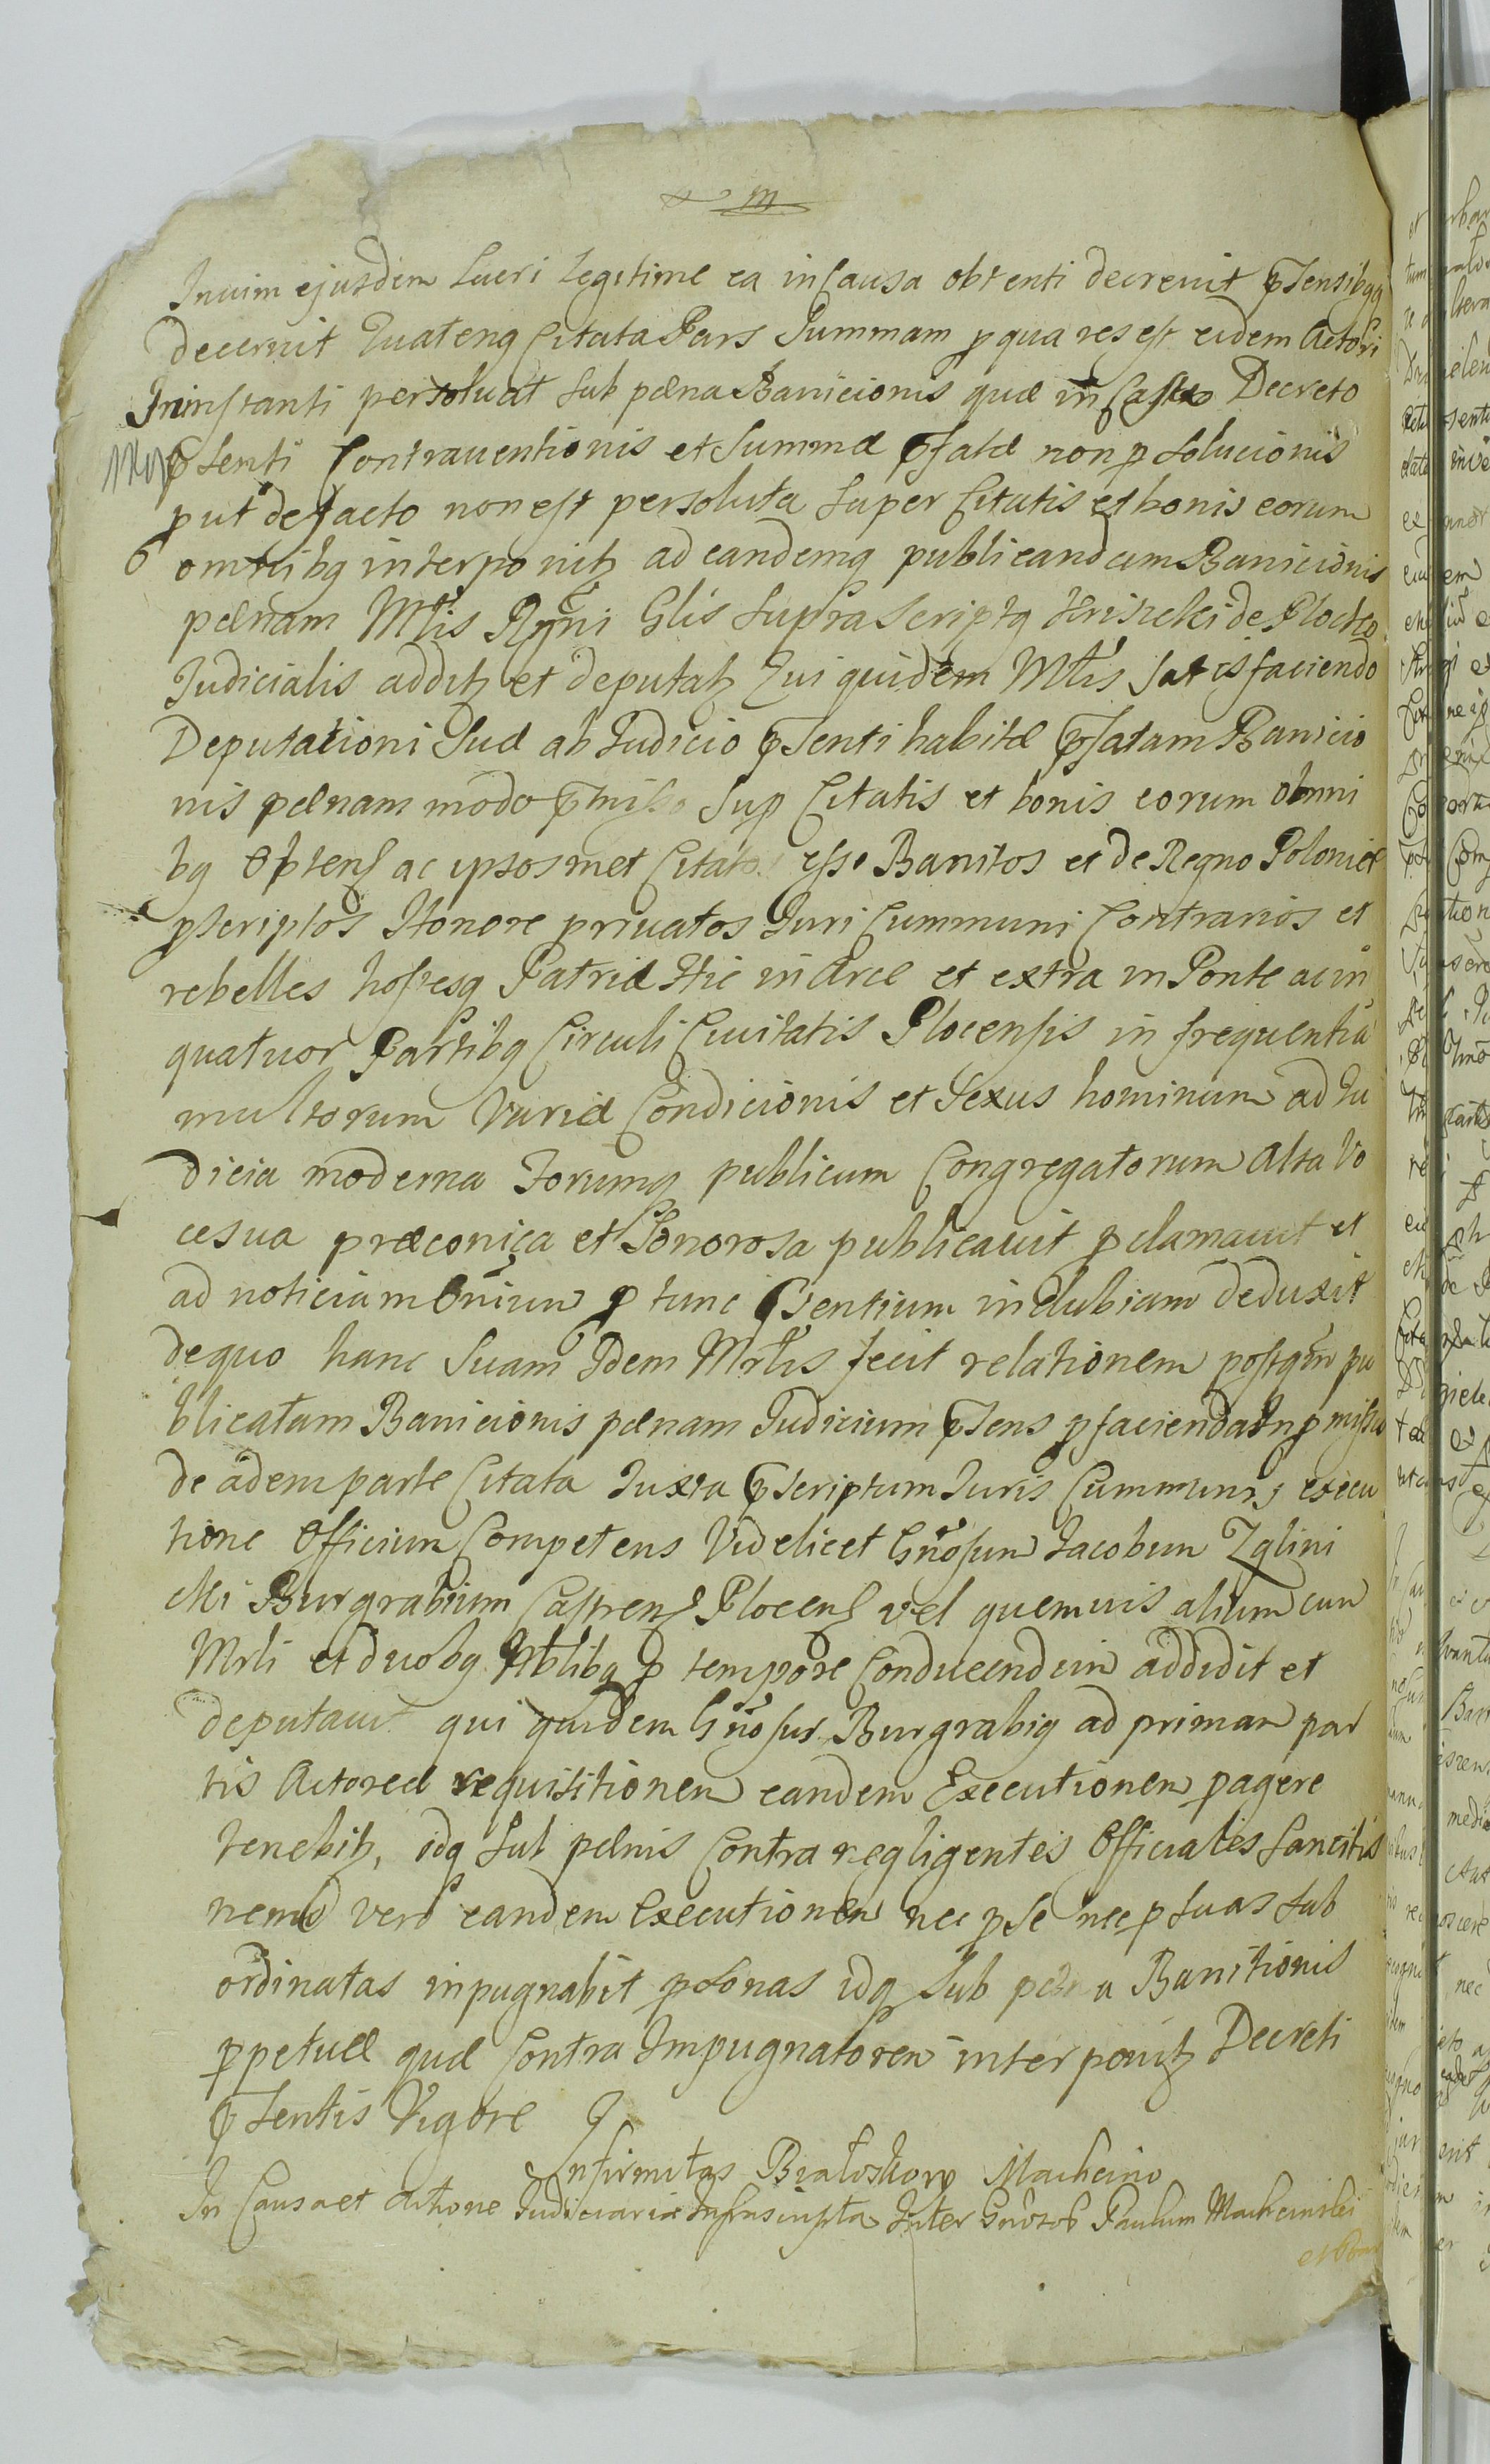 m
Inuim ejusdem Lucri Legitime ea in Causa obtenti decrevit pnsensibqq
decernit Quatenq Citata Pars Summam p qua res est eidem Actori
In instanti persoluat sub pœna Banicionis quæ in Casu Decreto
pnsenti Contrauentionis et Summæ pnfatæ non psolucionis
put de facto non est persoluta super Citatis et bonis eorum
omnibq interponitz ad eandemq publicandam Banicionis
pœnam Mtis Rgni Glis supra scriptq de Plocko
Judicialis additz et deputatz Qui quidem Mtis satisfaciendo
Deputationi Suæ ab Judicio pnsenti habitæ pnfatam Banicio
nis pœnam modo Sup Citatis et bonis eorum omni
bq Obtens ac ipsosmet Citatos esse Banitos et de Regno Poloniæ
pscriptos Honore priuatos Juri Cummuni Contrarios et
rebelles hostesq Patriæ Hic in Arce et extra in Ponte ac in
quatuor Partibq Circuli Ciuitatis Plocensis in frequentia
multorum Variæ Condicionis et Sexus hominum ad Ju
dicia moderna Forumq publicum Congregatorum Alta Vo
ce sua præconica et Sonorosa publicauit pclamauit et
ad noticiam Oniun p tunc pnsentium indubiam deduxit
de quo hanc Suam Idem Mrlis fecit relationem postqm pu
blicatam Banicionis pœnam Judicium pnsens p facienda In pmissis
de eadem parte Citata Juxta pnscriptum Juris Cummunis execu
tione Officium Competens Videlicet Gnosum Jacobum Zglini
cki Burgrabium Castrens Plocens vel quemuis alium cun
Mrli et duobq Nblibq p tempore Conducendum addidit et
deputauit qui quidem Gnosus Burgrabiq ad primam par
tis Actoreæ requisitionem eandem Executionem pagere
tenebitz, idq sub pœnis Contra negligentes Officiales Sancitis
nemo vero eandem Executionem nec p se nec p suas sub
ordinatas inpugnabit psonas idq sub pœna Banitionis
ppetuæ quæ Contra Impugnatorem interponitz Decreti
pnsentis Vigore
Infirmitas Białoskory Macheino
In Causa et Actione Judiciaria Infrascripta Inter Gnosos Paulum Macheinski